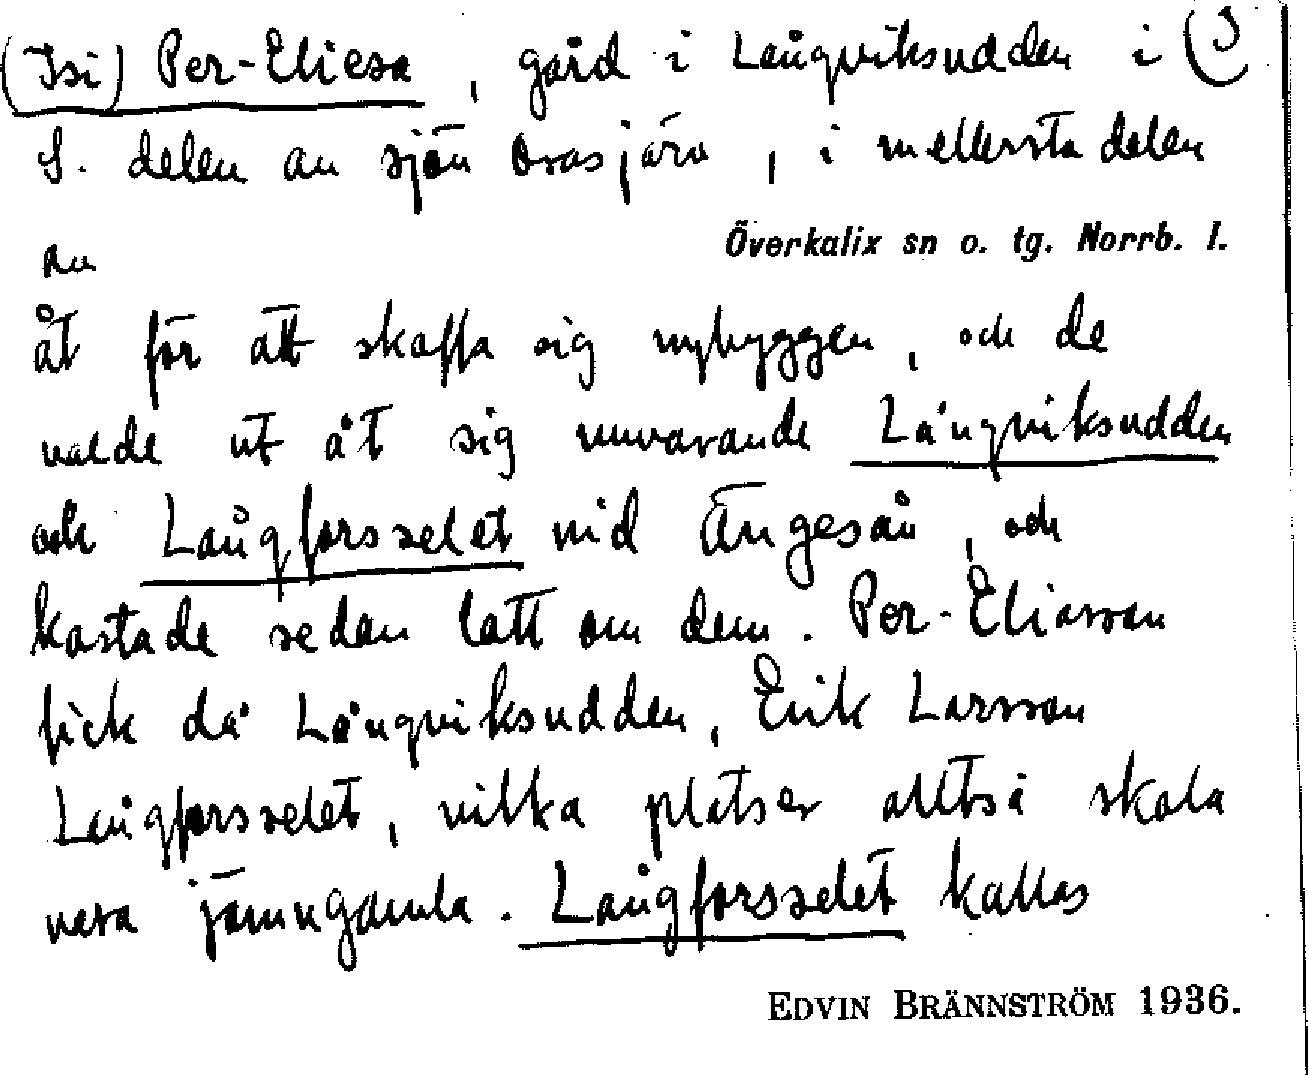 (Isi) Per-Eliesa, gård i Långviksudden i (3
S. delen av sjön Orasjärv, i mellersta delen
av
Överkalix sn o. tg. Norrb. l.
åt för att skaffa sig nybyggen, och de
valde ut åt sig nuvarande Långviksudden
och Långforsselet vid Ängesån, och
kastade sedan lott om dem. Per-Eliasson
fick då Långviksudden, Erik Larsson
Långforsselet, vilka platser alltså skola
vara jämngamla. Långforsselet kallas
EDVIN BRÄNNSTRÖM 1936.